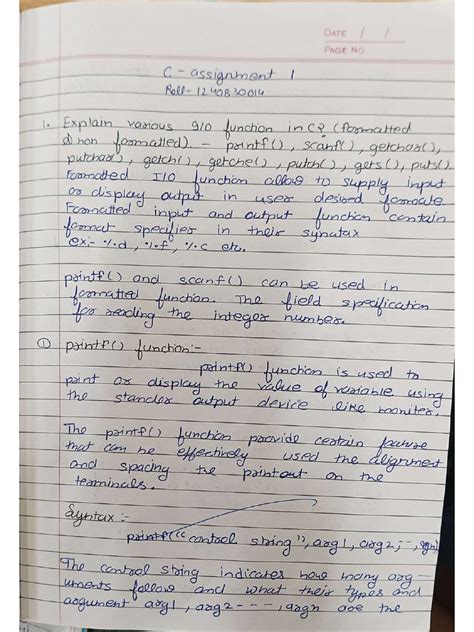 DATE / /
PAGE NO.
C - assignment 1
Roll - 1240830014
1. Explain various I/O function in C? (formatted
& non formatted) - printf(), scanf(), getchar(),
putchar(), getch(), getche(), putch(), gets(), puts()
Formatted I/O function allow to supply input
or display output in user desired formate
Formatted input and output function contain
format specifier in their synatax
ex:- %d, %f, %c etc.
printf() and scanf() can be used in
formatted function. The field specification
for reading the integer number.
① printf() function:-
printf() function is used to
print or display the value of variable using
the stander output device like moniter.
The printf() function provide certain feature
that can be effectively used the alignment
and spacing the printout on the
terminals.
Syntax :-
printf("control string", arg1, arg2, --, argn)
The control string indicates how many arg-
uments follow and what their types and
argument arg1, arg2 ---, argn are the